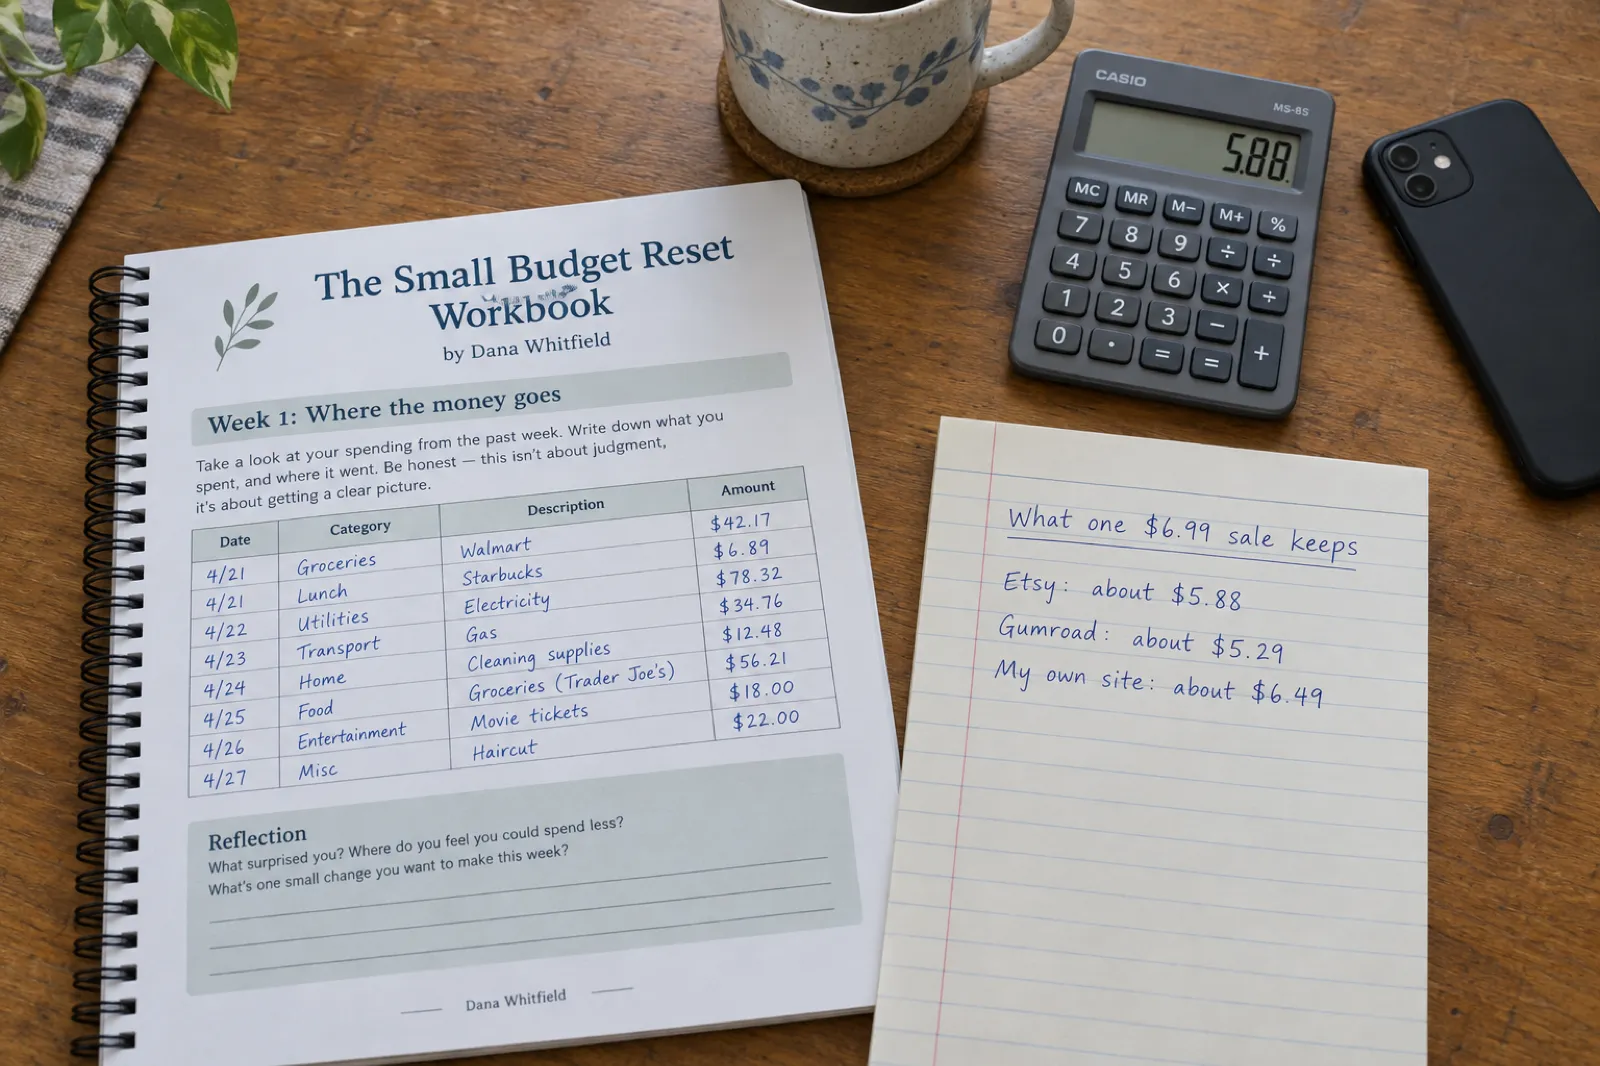 The Small Budget Reset
Workbook
by Dana Whitfield
Week 1: Where the money goes
Take a look at your spending from the past week. Write down what you
spent, and where it went. Be honest — this isn't about judgment,
it's about getting a clear picture.
Date Category Description Amount
4/21 Groceries Walmart $42.17
4/21 Lunch Starbucks $6.89
4/22 Utilities Electricity $78.32
4/23 Transport Gas $34.76
4/24 Home Cleaning supplies $12.48
4/25 Food Groceries (Trader Joe's) $56.21
4/26 Entertainment Movie tickets $18.00
4/27 Misc Haircut $22.00
Reflection
What surprised you? Where do you feel you could spend less?
What's one small change you want to make this week?
Dana Whitfield
CASIO
MS-8S
5.88.
MC MR M− M+ %
7 8 9 ÷ ÷
4 5 6 × ÷
1 2 3 −
0 · = = +
What one $6.99 sale keeps
Etsy: about $5.88
Gumroad: about $5.29
My own site: about $6.49